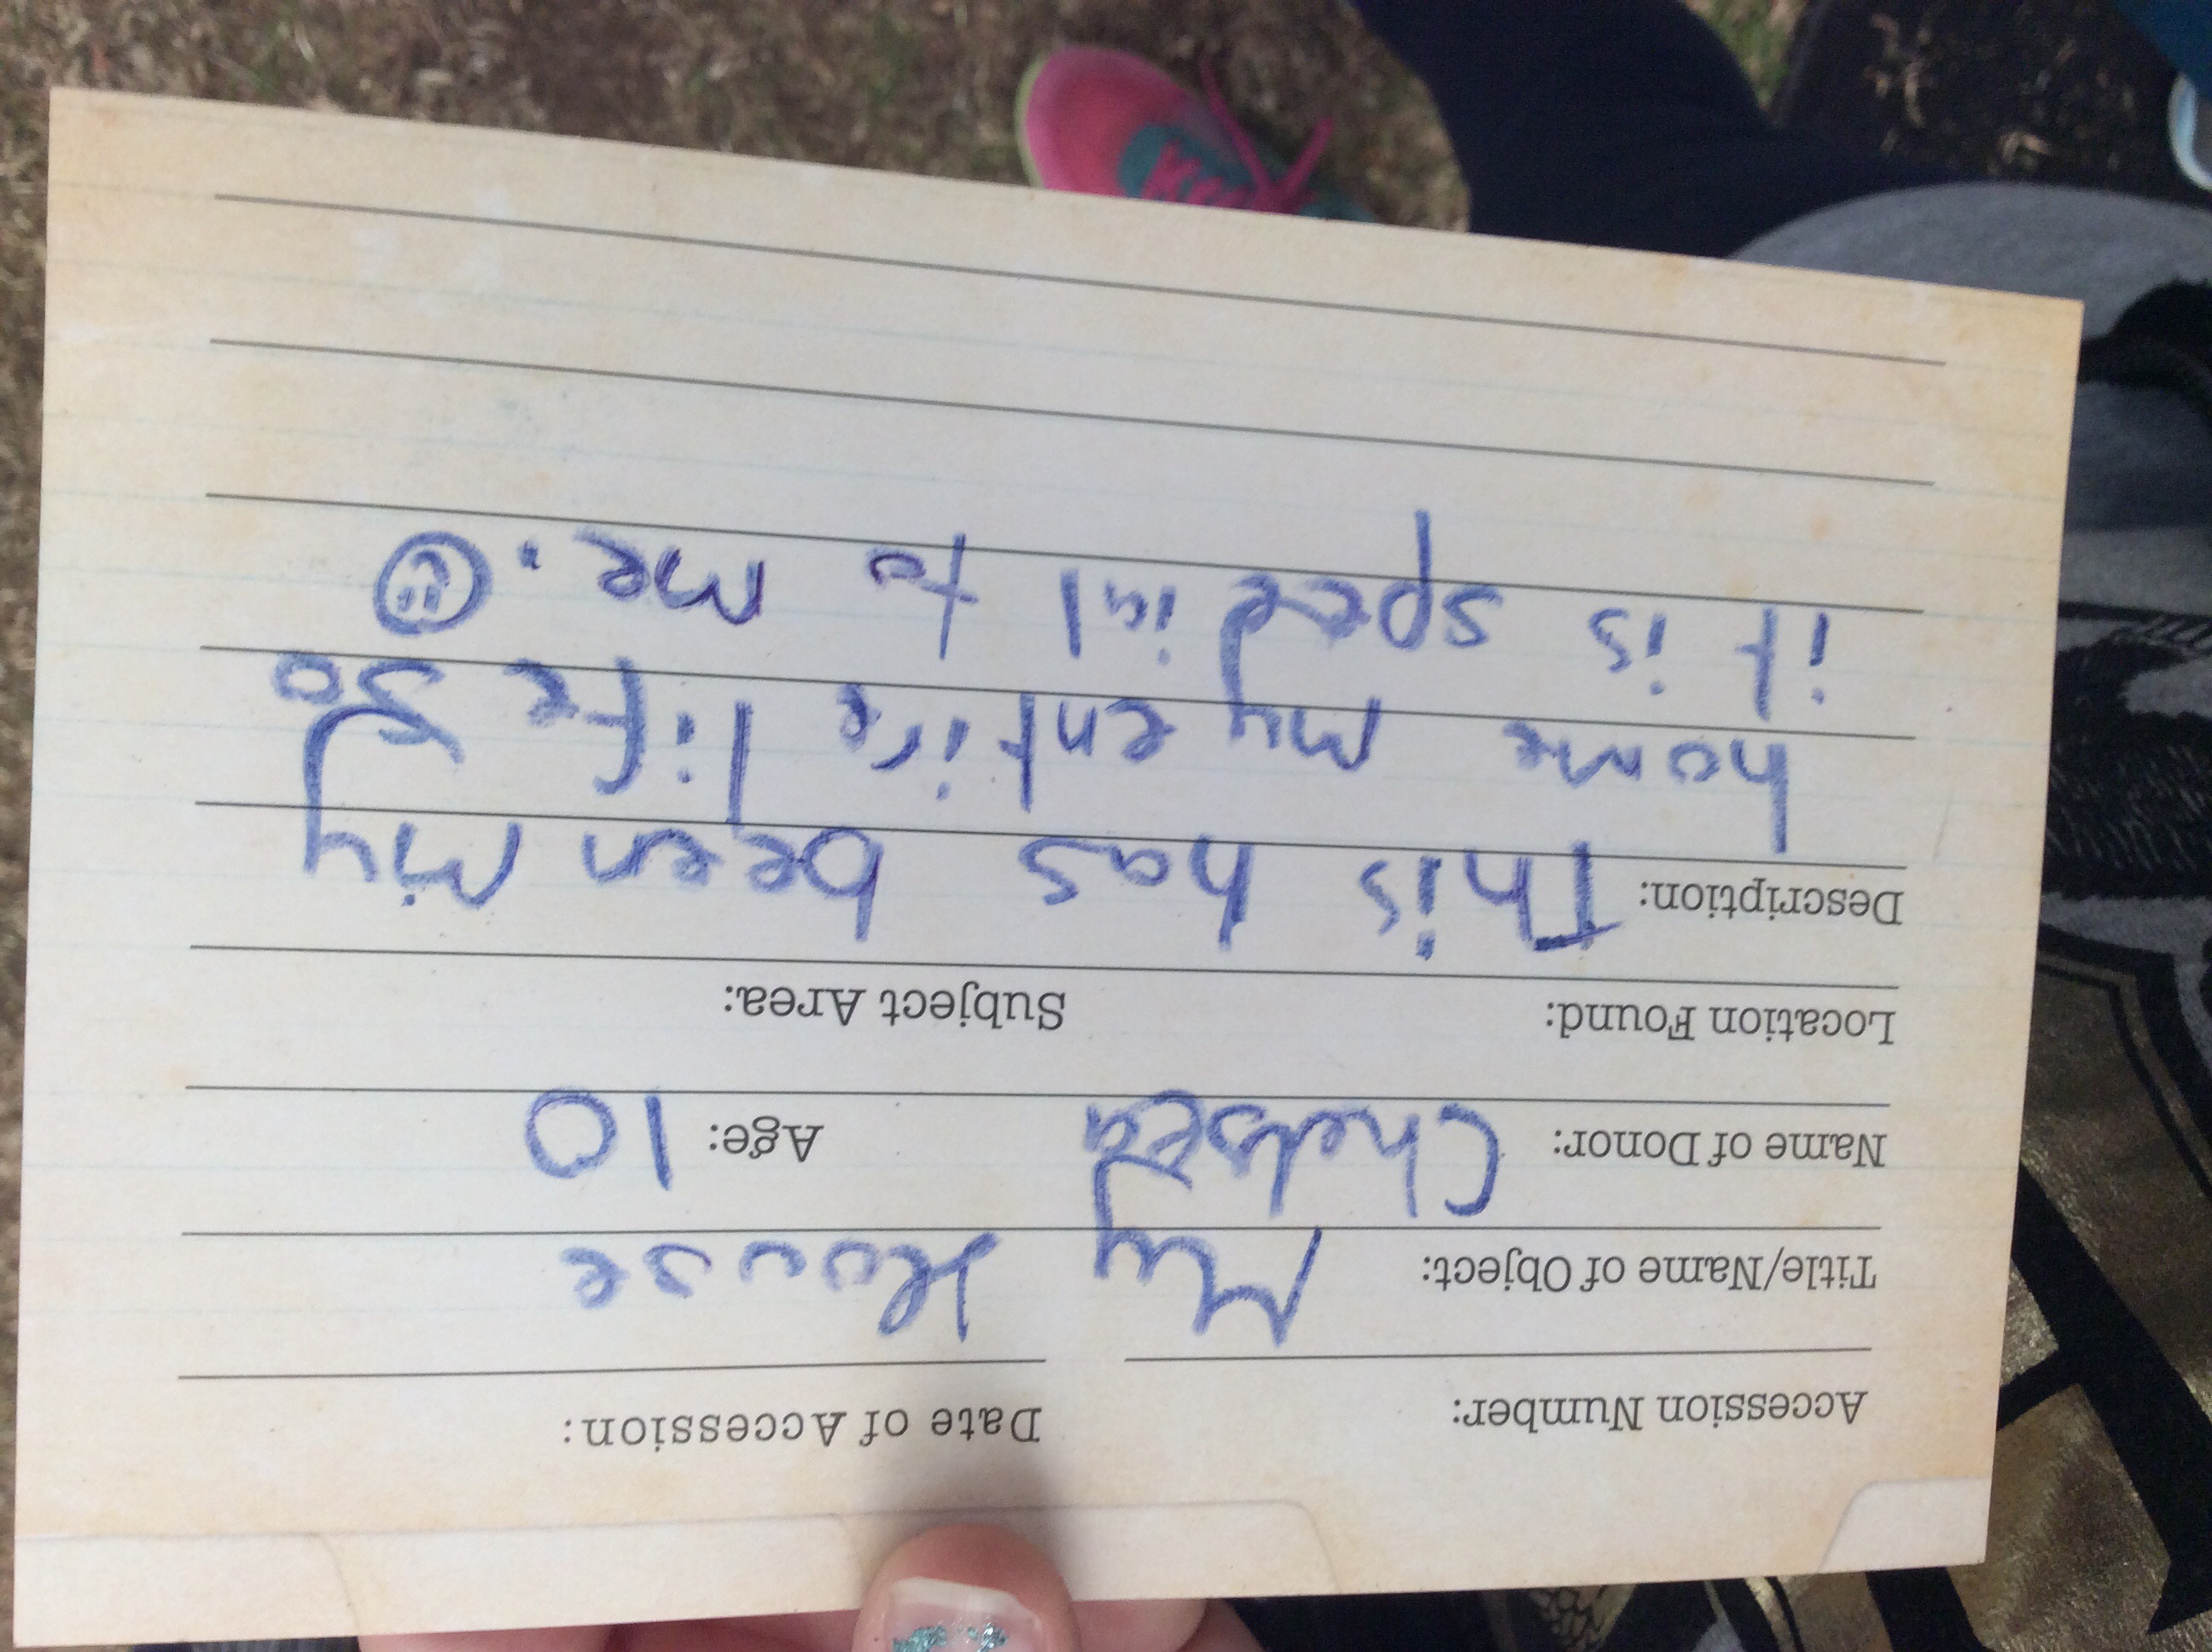 Accession Number: Date of Accession:
Title/Name of Object: My House
Name of Donor: Chelsea Age: 10
Location Found: Subject Area:
Description: This has been my
home my entire life so
it is speeial to me.